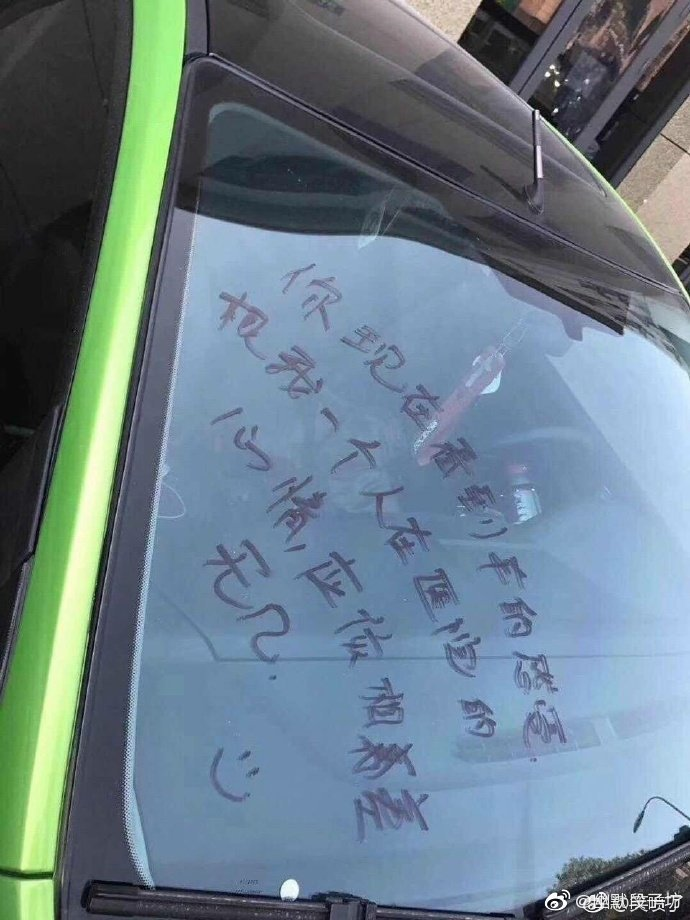 你现在看到车的感受.
我一个人在医院的
心情,应该相差
无几. :)
@幽默段子坊